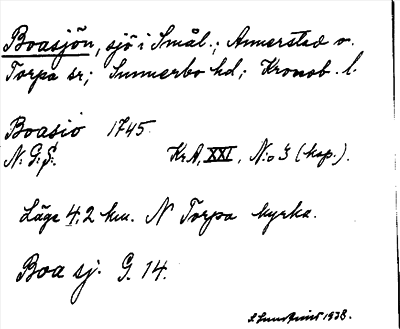 Boasjön, sjö i Smål.; Annerstad o.
Torpa sr; Sunnerbo hd; Kronob. l.
Boasio 1745.
N: G: S. KrA, XXI, N:o 3 (kop.).
Läge 4,2 km. N Torpa kyrka.
Boa sj. G. 14.
1938.